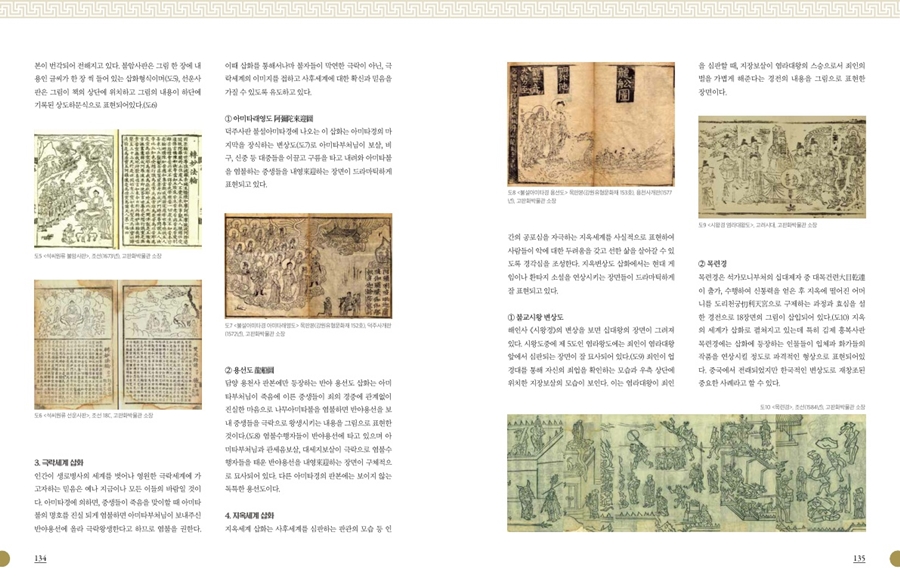 본이 번각되어 전해지고 있다. 불암사판은 그림 한 장에 내
용인 글씨가 한 장 씩 들어 있는 삽화형식이며(도5), 선운사
판은 그림이 책의 상단에 위치하고 그림의 내용이 하단에
기록된 상도하문식으로 표현되어있다.(도6)
轉妙法輪
도5 <석씨원류 불암사판>, 조선(1673년), 고판화박물관 소장
도6 <석씨원류 선운사판>, 조선 18C, 고판화박물관 소장
3. 극락세계 삽화
인간이 생로병사의 세계를 벗어나 영원한 극락세계에 가
고자하는 믿음은 예나 지금이나 모든 이들의 바람일 것이
다. 아미타경에 의하면, 중생들이 죽음을 맞이할 때 아미타
불의 명호를 진실 되게 염불하면 아미타부처님이 보내주신
반야용선에 올라 극락왕생한다고 하므로 염불을 권한다.
134
이때 삽화를 통해서나마 불자들이 막연한 극락이 아닌, 극
락세계의 이미지를 접하고 사후세계에 대한 확신과 믿음을
가질 수 있도록 유도하고 있다.
① 아미타래영도 阿彌陀來迎圖
덕주사판 불설아미타경에 나오는 이 삽화는 아미타경의 마
지막을 장식하는 변상도(도7)로 아미타부처님이 보살, 비
구, 신중 등 대중들을 이끌고 구름을 타고 내려와 아미타불
을 염불하는 중생들을 내영來迎하는 장면이 드라마틱하게
표현되고 있다.
도7 <불설아미타경 아미타래영도> 목판본(강원유형문화재 152호), 덕주사개판
(1572년), 고판화박물관 소장
② 용선도 龍船圖
담양 용천사 판본에만 등장하는 반야 용선도 삽화는 아미
타부처님이 죽음에 이른 중생들이 죄의 경중에 관계없이
진실한 마음으로 나무아미타불을 염불하면 반야용선을 보
내 중생들을 극락으로 왕생시키는 내용을 그림으로 표현한
것이다.(도8) 염불수행자들이 반야용선에 타고 있으며 아
미타부처님과 관세음보살, 대세지보살이 극락으로 염불수
행자들을 태운 반야용선을 내영來迎하는 장면이 구체적으
로 묘사되어 있다. 다른 아미타경의 판본에는 보이지 않는
독특한 용선도이다.
4. 지옥세계 삽화
지옥세계 삽화는 사후세계를 심판하는 판관의 모습 등 인
龍船圖
도8 <불설아미타경 용선도> 목판본(강원유형문화재 153호), 용천사개판(1577
년), 고판화박물관 소장
간의 공포심을 자극하는 지옥세계를 사실적으로 표현하여
사람들이 악에 대한 두려움을 갖고 선한 삶을 살아갈 수 있
도록 경각심을 조성한다. 지옥변상도 삽화에서는 현대 게
임이나 환타지 소설을 연상시키는 장면들이 드라마틱하게
잘 표현되고 있다.
① 불교시왕 변상도
해인사 《시왕경》의 변상을 보면 십대왕의 장면이 그려져
있다. 시왕도중에 제 5도인 염라왕도에는 죄인이 염라대왕
앞에서 심판되는 장면이 잘 묘사되어 있다.(도9) 죄인이 업
경대를 통해 자신의 죄업을 확인하는 모습과 우측 상단에
위치한 지장보살의 모습이 보인다. 이는 염라대왕이 죄인
을 심판할 때, 지장보살이 염라대왕의 스승으로서 죄인의
벌을 가볍게 해준다는 경전의 내용을 그림으로 표현한
장면이다.
도9 <시왕경 염라대왕도>, 고려시대, 고판화박물관 소장
② 목련경
목련경은 석가모니부처의 십대제자 중 대목건련大目乾連
이 출가, 수행하여 신통력을 얻은 후 지옥에 떨어진 어머
니를 도리천궁忉利天宮으로 구제하는 과정과 효심을 설
한 경전으로 18장면의 그림이 삽입되어 있다.(도10) 지옥
의 세계가 삽화로 펼쳐지고 있는데 특히 김제 흥복사판
목련경에는 삽화에 등장하는 인물들이 입체파 화가들의
작품을 연상시킬 정도로 파격적인 형상으로 표현되어있
다. 중국에서 전래되었지만 한국적인 변상도로 재창조된
중요한 사례라고 할 수 있다.
도10 <목련경>, 조선(1584년), 고판화박물관 소장
135